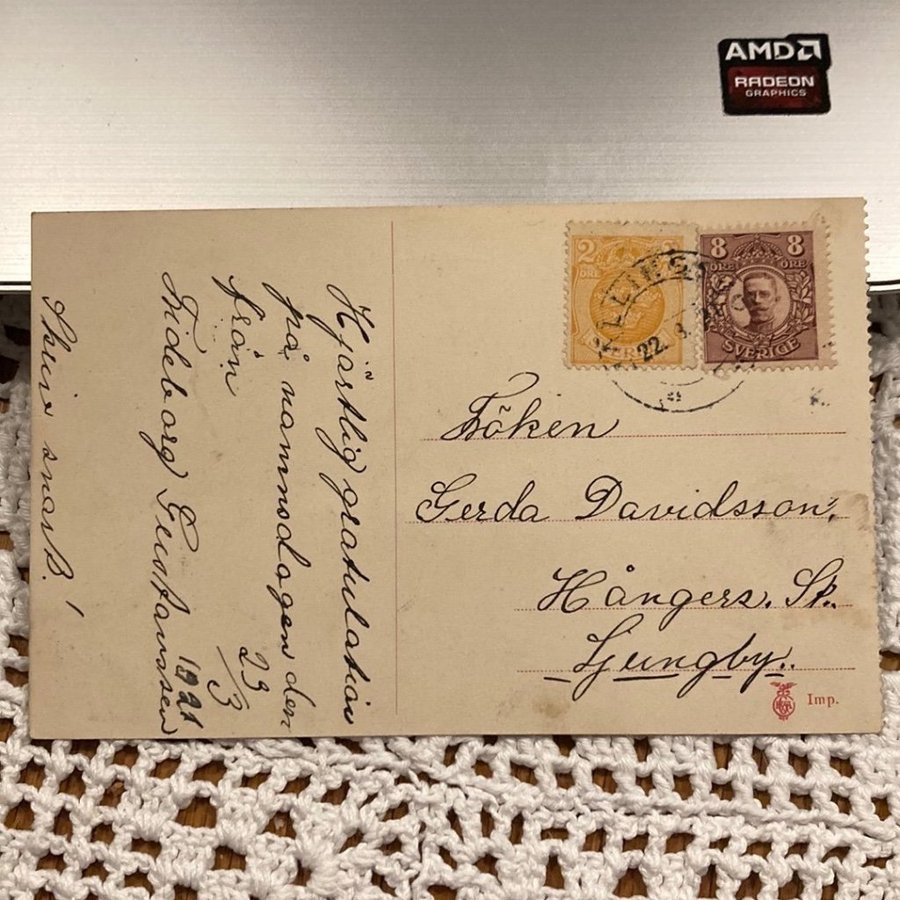 AMD
RADEON
GRAPHICS
2
ÖRE
SVERIGE
8 8
ÖRE ÖRE
SVERIGE
22. 3.
Hjärtlig gratulation
på namnsdagen den
från 23/3
Fideborg Gustavssen 1921
Skriv snart!
Fröken
Gerda Davidsson.
Hångers. Sk.
Ljungby.
Imp.